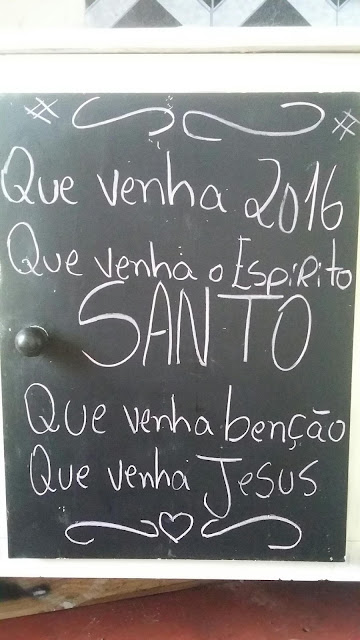 Que venha 2016
Que venha o Espirito
SANTO
Que venha benção
Que venha Jesus